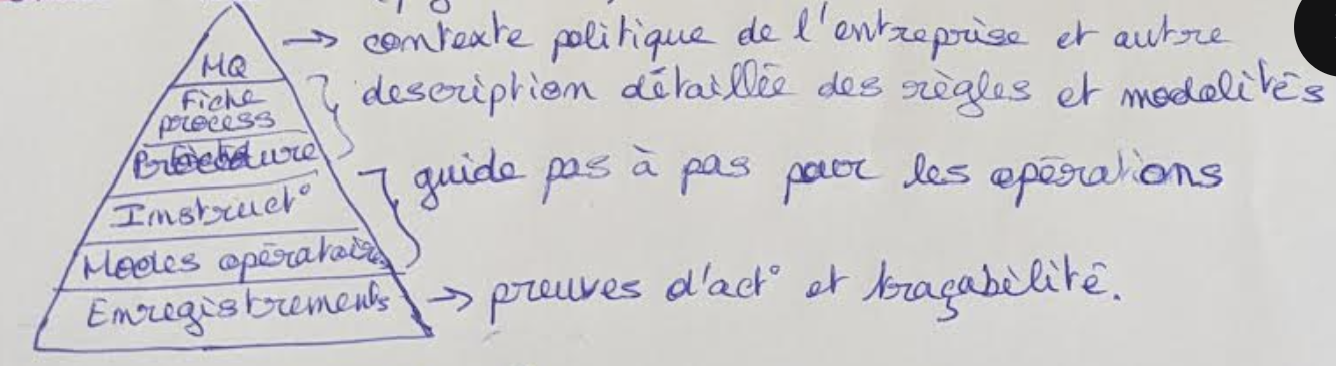 MQ → contexte politique de l'entreprise et autre
Fiche process
description détaillée des règles et modalités
Procédure
guide pas à pas pour les opérations
Instruct°
Modes opératoires
Enregistrements → preuves d'act° et traçabilité.